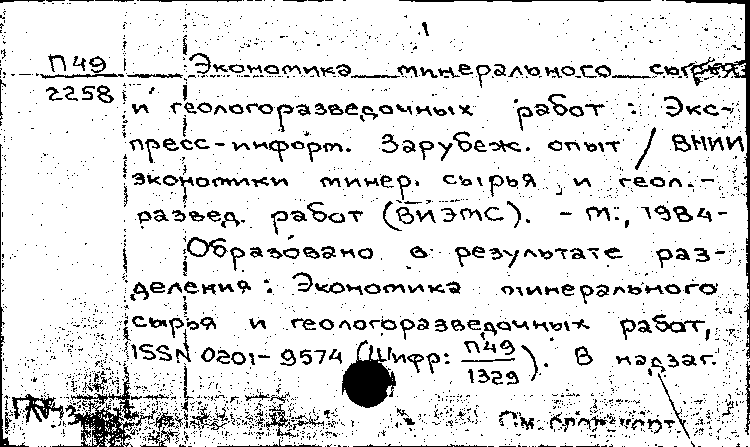 1
П49 Экономика минерального сырья
2258 и геологоразведочных работ : Экс-
пресс-информ. Зарубеж. опыт / ВНИИ
экономики минер. сырья и геол.-
развед. работ (ВИЭМС). - М., 1984-
Образовано в результате раз-
деления: Экономика минерального
сырья и геологоразведочных работ,
ISSN 0201-9574 (Шифр: П49/1329). В надзаг.
См. след. карт.